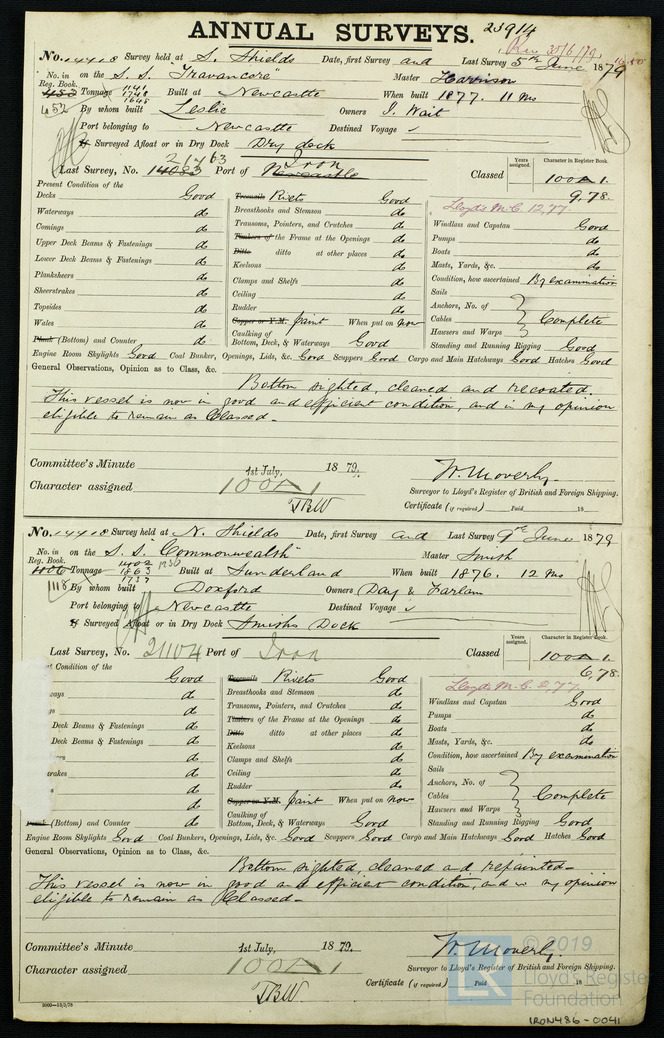 ANNUAL SURVEYS. 23914
Rec 30/6/79
No. 14418 Survey held at S. Shields Date, first Survey and Last Survey 5th June 1879
No. in Reg. Book. on the S. S. "Travancore" Master Harrison
453 Tonnage 1141 1748 1645 Built at Newcastle When built 1877. 11 Mo
452 By whom built Leslie Owners I. Wait
Port belonging to Newcastle Destined Voyage ✓
If Surveyed Afloat or in Dry Dock Dry dock
21463 Iron
Last Survey, No. 14083 Port of Newcastle Classed
Years assigned. Character in Register Book.
100A1.
9,78.
Lloyd's M.C. 12,77
Present Condition of the
Decks Good Treenails Rivets Good
Waterways do Breasthooks and Stemson do Windlass and Capstan Good
Comings do Transoms, Pointers, and Crutches do Pumps do
Upper Deck Beams & Fastenings do Timbers of the Frame at the Openings do Boats do
Lower Deck Beams & Fastenings do Ditto ditto at other places do Masts, Yards, &c. do
Planksheers do Keelsons do Condition, how ascertained By examination
Sheerstrakes do Clamps and Shelfs do Sails
Topsides do Ceiling do Anchors, No. of
Wales do Rudder do Cables Complete
Plank (Bottom) and Counter do Copper or Y.M. Paint When put on now Hawsers and Warps
Caulking of Bottom, Deck, & Waterways Good Standing and Running Rigging Good
Engine Room Skylights Good Coal Bunker, Openings, Lids, &c. Good Scuppers Good Cargo and Main Hatchways Good Hatches Good
General Observations, Opinion as to Class, &c.
Bottom sighted, cleaned and recoated
This vessel is now in good and efficient condition, and in my opinion
eligible to remain as Classed.
Committee's Minute 1st July, 1879.
Character assigned 100A1
TBW
W. Moverly.
Surveyor to Lloyd's Register of British and Foreign Shipping.
Certificate (if required) Paid 18
No. 14418 Survey held at N. Shields Date, first Survey and Last Survey 9th June 1879
No. in Reg. Book. on the S. S. "Commonwealth" Master Smith
406 Tonnage 1202 1863 1737 1736 Built at Sunderland When built 1876. 12 Mo
1118 By whom built Doxford Owners Day & Farlam
Port belonging to Newcastle Destined Voyage ✓
If Surveyed Afloat or in Dry Dock Smiths Dock
Last Survey, No. 21104 Port of Iron Classed
Years assigned. Character in Register Book.
100A1.
6,78.
Lloyd's M.C. 2,77
at Condition of the
Good Treenails Rivets Good
ways do Breasthooks and Stemson do Windlass and Capstan Good
gs do Transoms, Pointers, and Crutches do Pumps do
Deck Beams & Fastenings do Timbers of the Frame at the Openings do Boats do
Deck Beams & Fastenings do Ditto ditto at other places do Masts, Yards, &c. do
ers do Keelsons do Condition, how ascertained By examination
rakes do Clamps and Shelfs do Sails
do Ceiling do Anchors, No. of
do Rudder do Cables Complete
Plank (Bottom) and Counter do Copper or Y.M. Paint When put on now Hawsers and Warps
Caulking of Bottom, Deck, & Waterways Good Standing and Running Rigging Good
Engine Room Skylights Good Coal Bunkers, Openings, Lids, &c. Good Scuppers Good Cargo and Main Hatchways Good Hatches Good
General Observations, Opinion as to Class, &c.
Bottom sighted, cleaned and repainted
This vessel is now in good and efficient condition, and in my opinion
eligible to remain as Classed
Committee's Minute 1st July, 1879.
Character assigned 100A1
TBW
W. Moverly.
Surveyor to Lloyd's Register of British and Foreign Shipping.
Certificate (if required) Paid 18
© 2019
Lloyd's Register
Foundation
LR
2000—13/2/78
IRON486-0041